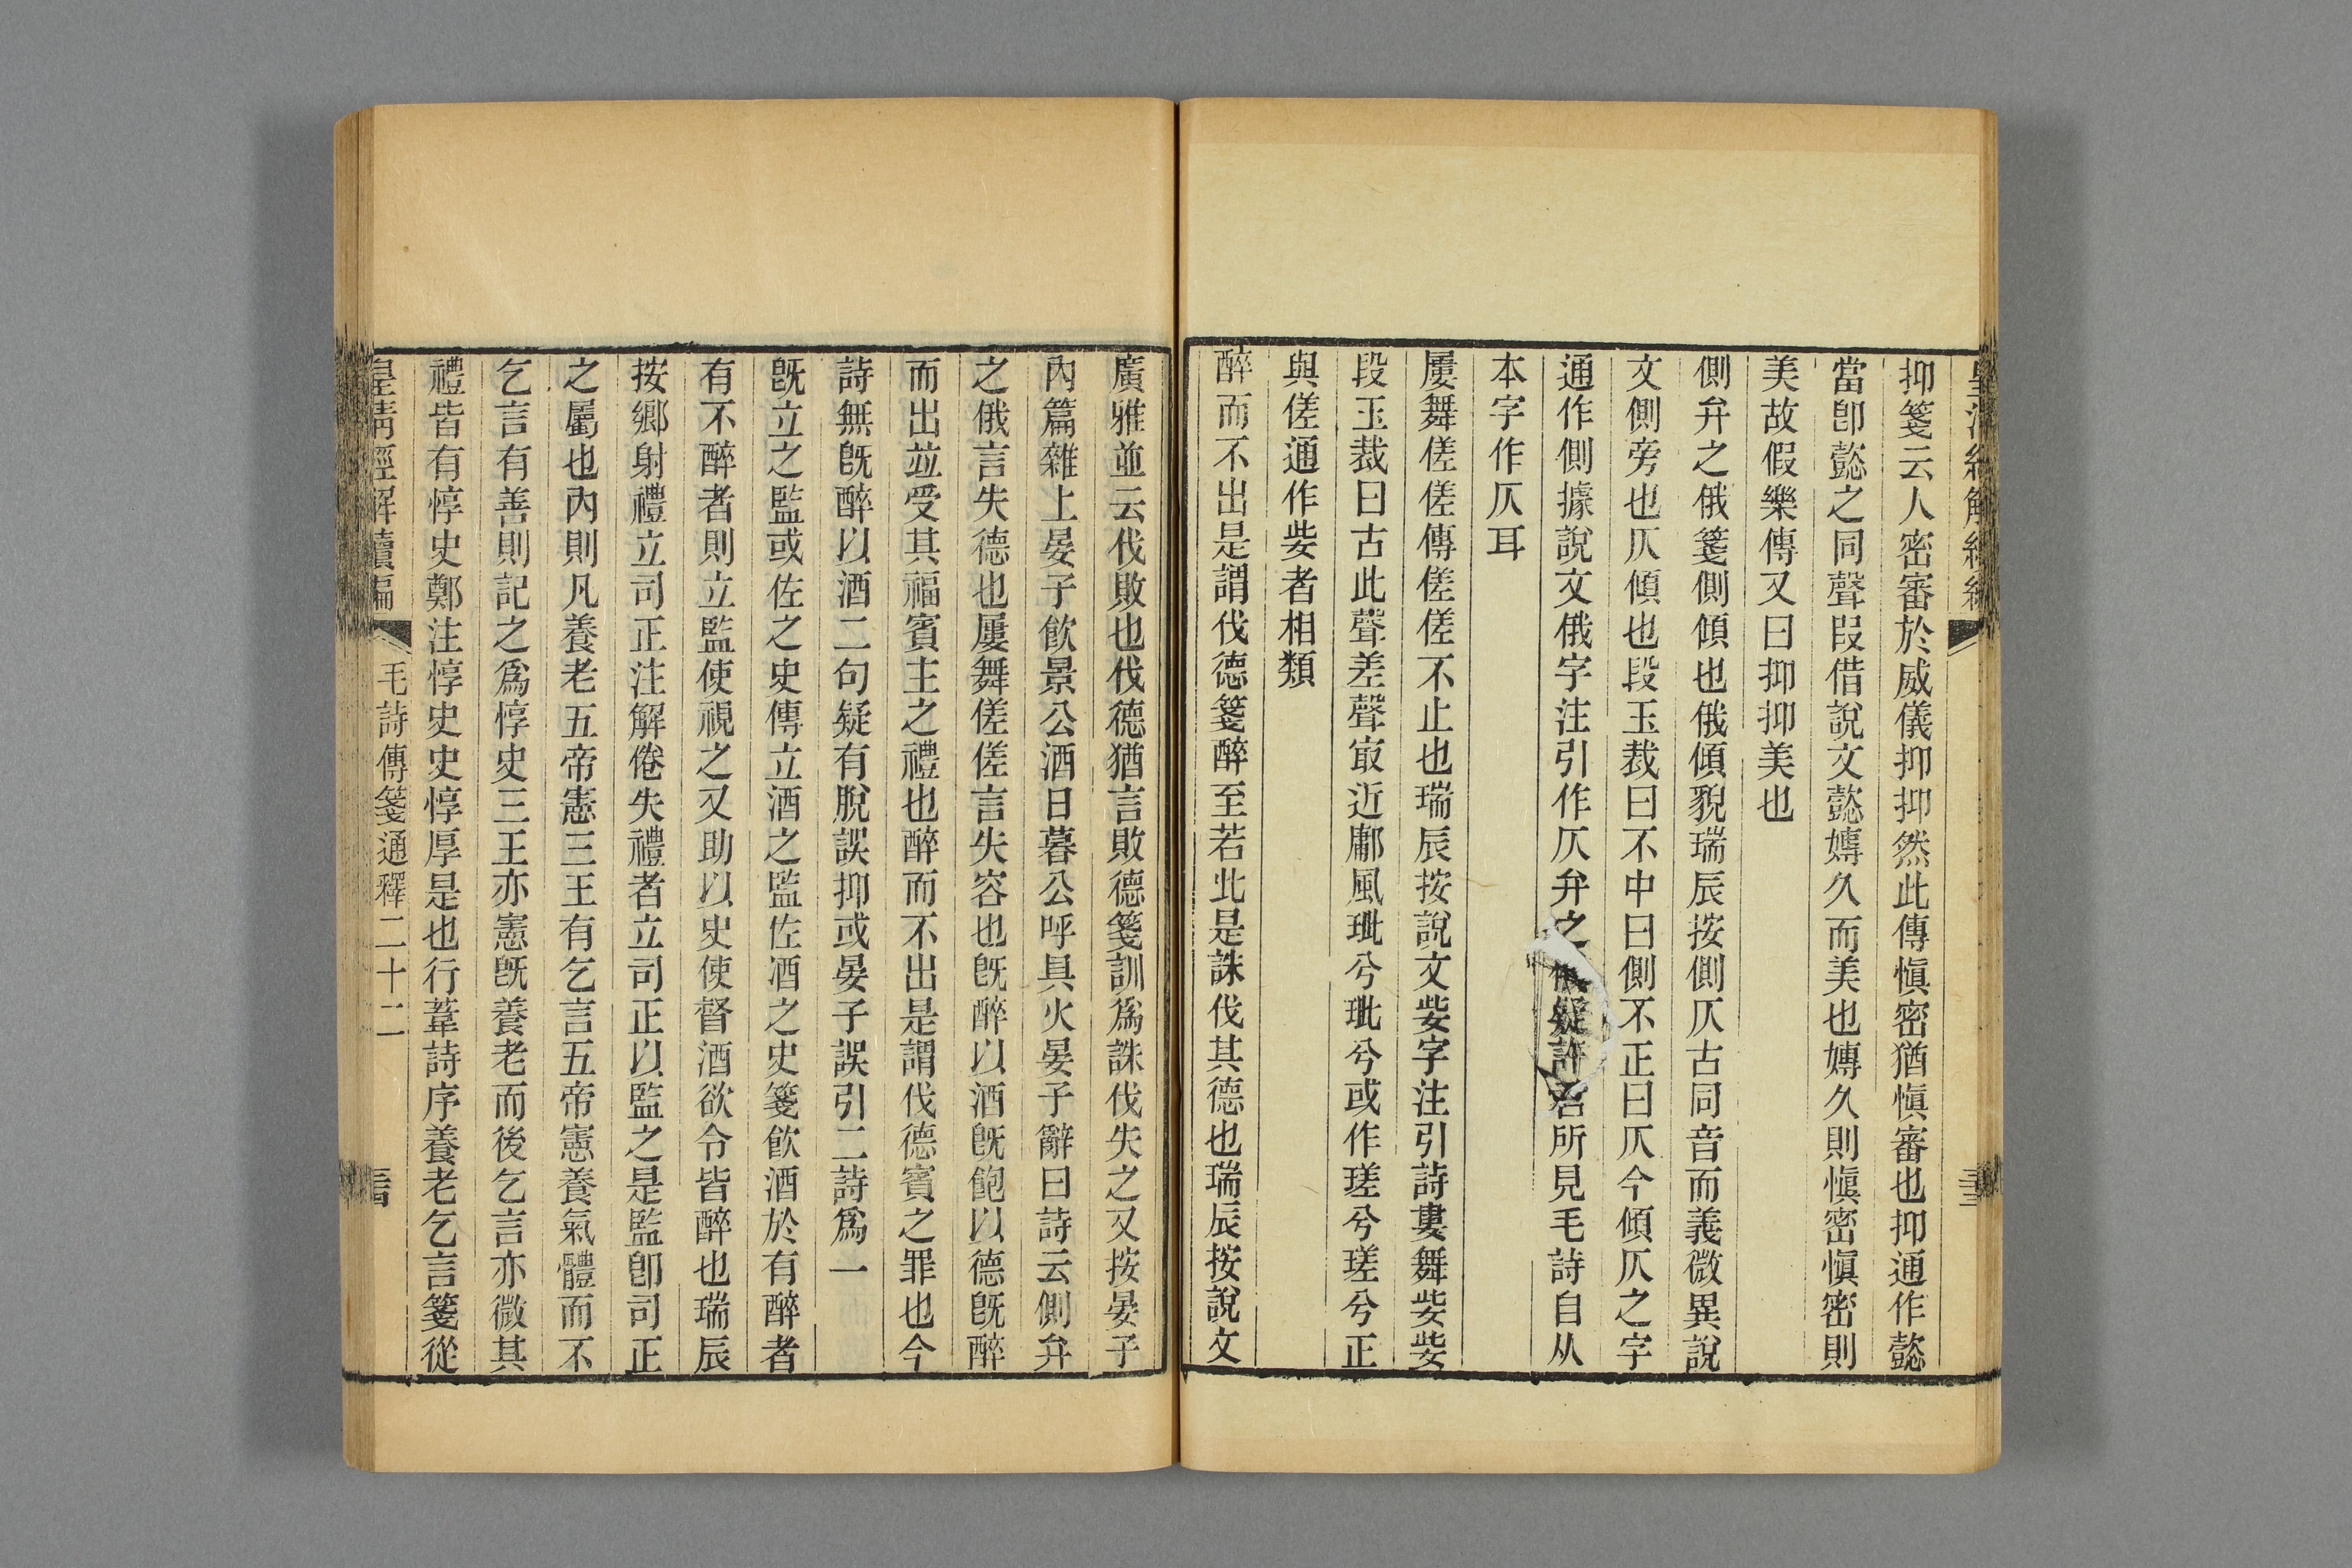 抑箋云人密審於威儀抑抑然此傳愼密猶愼審也抑通作懿
當卽懿之同聲叚借說文懿嫥久而美也嫥久則愼密愼密則
美故假樂傳又曰抑抑美也
側弁之俄箋側傾也俄傾貌瑞辰按側仄古同音而義微異說
文側旁也仄傾也段玉裁曰不中曰側不正曰仄今傾仄之字
通作側據說文俄字注引作仄弁之俄疑許君所見毛詩自从
本字作仄耳
屢舞傞傞傳傞傞不止也瑞辰按說文姕字注引詩婁舞姕姕
段玉裁曰古此聲差聲㝡近鄘風玼兮玼兮或作瑳兮瑳兮正
與傞通作姕者相類
醉而不出是謂伐德箋醉至若此是誅伐其德也瑞辰按說文
廣雅並云伐敗也伐德猶言敗德箋訓爲誅伐失之又按晏子
內篇雜上晏子飮景公酒日暮公呼具火晏子辭曰詩云側弁
之俄言失德也屢舞傞傞言失容也旣醉以酒旣飽以德旣醉
而出並受其福賓主之禮也醉而不出是謂伐德賓之罪也今
詩無旣醉以酒二句疑有脫誤抑或晏子誤引二詩爲一
旣立之監或佐之史傳立酒之監佐酒之史箋飮酒於有醉者
有不醉者則立監使視之又助以史使督酒欲令皆醉也瑞辰
按鄉射禮立司正注解倦失禮者立司正以監之是監卽司正
之屬也內則凡養老五帝憲三王有乞言五帝憲養氣體而不
乞言有善則記之爲惇史三王亦憲旣養老而後乞言亦微其
禮皆有惇史鄭注惇史史惇厚是也行葦詩序養老乞言箋從
皇清經解續編 毛詩傳箋通釋二十二